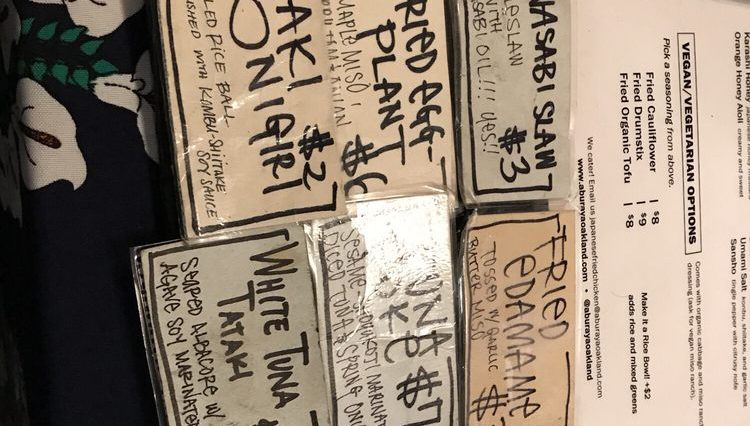 Karashi Honey
Orange Honey Aioli creamy and sweet
Umami Salt kombu, shiitake, and garlic salt
Sansho tingle pepper with citrusy note
VEGAN/VEGETARIAN OPTIONS
Pick a seasoning from above.
Comes with organic cabbage and miso ranch
dressing (ask for vegan miso ranch).
Fried Cauliflower | $8
Fried Drumstix | $9
Fried Organic Tofu | $8
Make it a Rice Bowl! +$2
adds rice and mixed greens
We cater! Email us japanesefriedchicken@aburayaoakland.com
www.aburayaoakland.com • @aburayaoakland
WASABI SLAW
WITH
WASABI OIL!!! YES!!
$3
FRIED
EDAMAME
TOSSED IN GARLIC
BUTTER MISO
FRIED EGG-
PLANT
MAPLE MISO
TUNA
POKE $7
SESAME
DICED TUNA & SPRING
ONIGIRI
$2
RICE BALL-
WITH KOMBU-SHIITAKE
SOY SAUCE
WHITE TUNA
TATAKI
SEARED ALBACORE W/
AGAVE SOY MARINATE